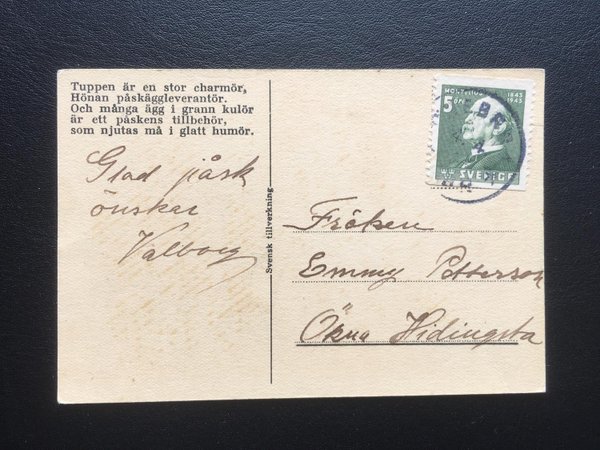 Tuppen är en stor charmör,
Hönan påskäggleverantör.
Och många ägg i grann kulör
är ett påskens tillbehör,
som njutas må i glatt humör.
Glad påsk
önskar
Valborg
Svensk tillverkning
MONTELIUS
1843
1943
5
ÖRE
SVERIGE
Fröken
Emmy Petterson
Ökna Hidingsta